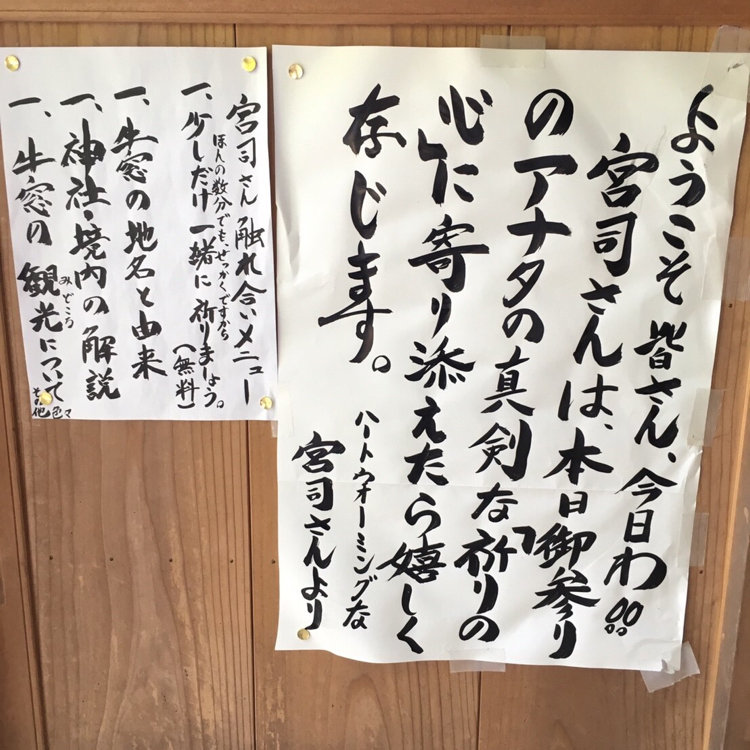 ようこそ皆さん、今日わ
宮司さんは、本日御参り
のアナタの真剣な「祈りの
心」に寄り添えたら嬉しく
存じます。
ハートウォーミングな
宮司さんより
宮司さん触れ合いメニュー
ほんの数分でも、せっかくですから
一、少しだけ一緒に祈りましょう。
(無料)
一、牛窓の地名と由来
一、神社・境内の解説
みどころ
一、牛窓の観光について
その他色々